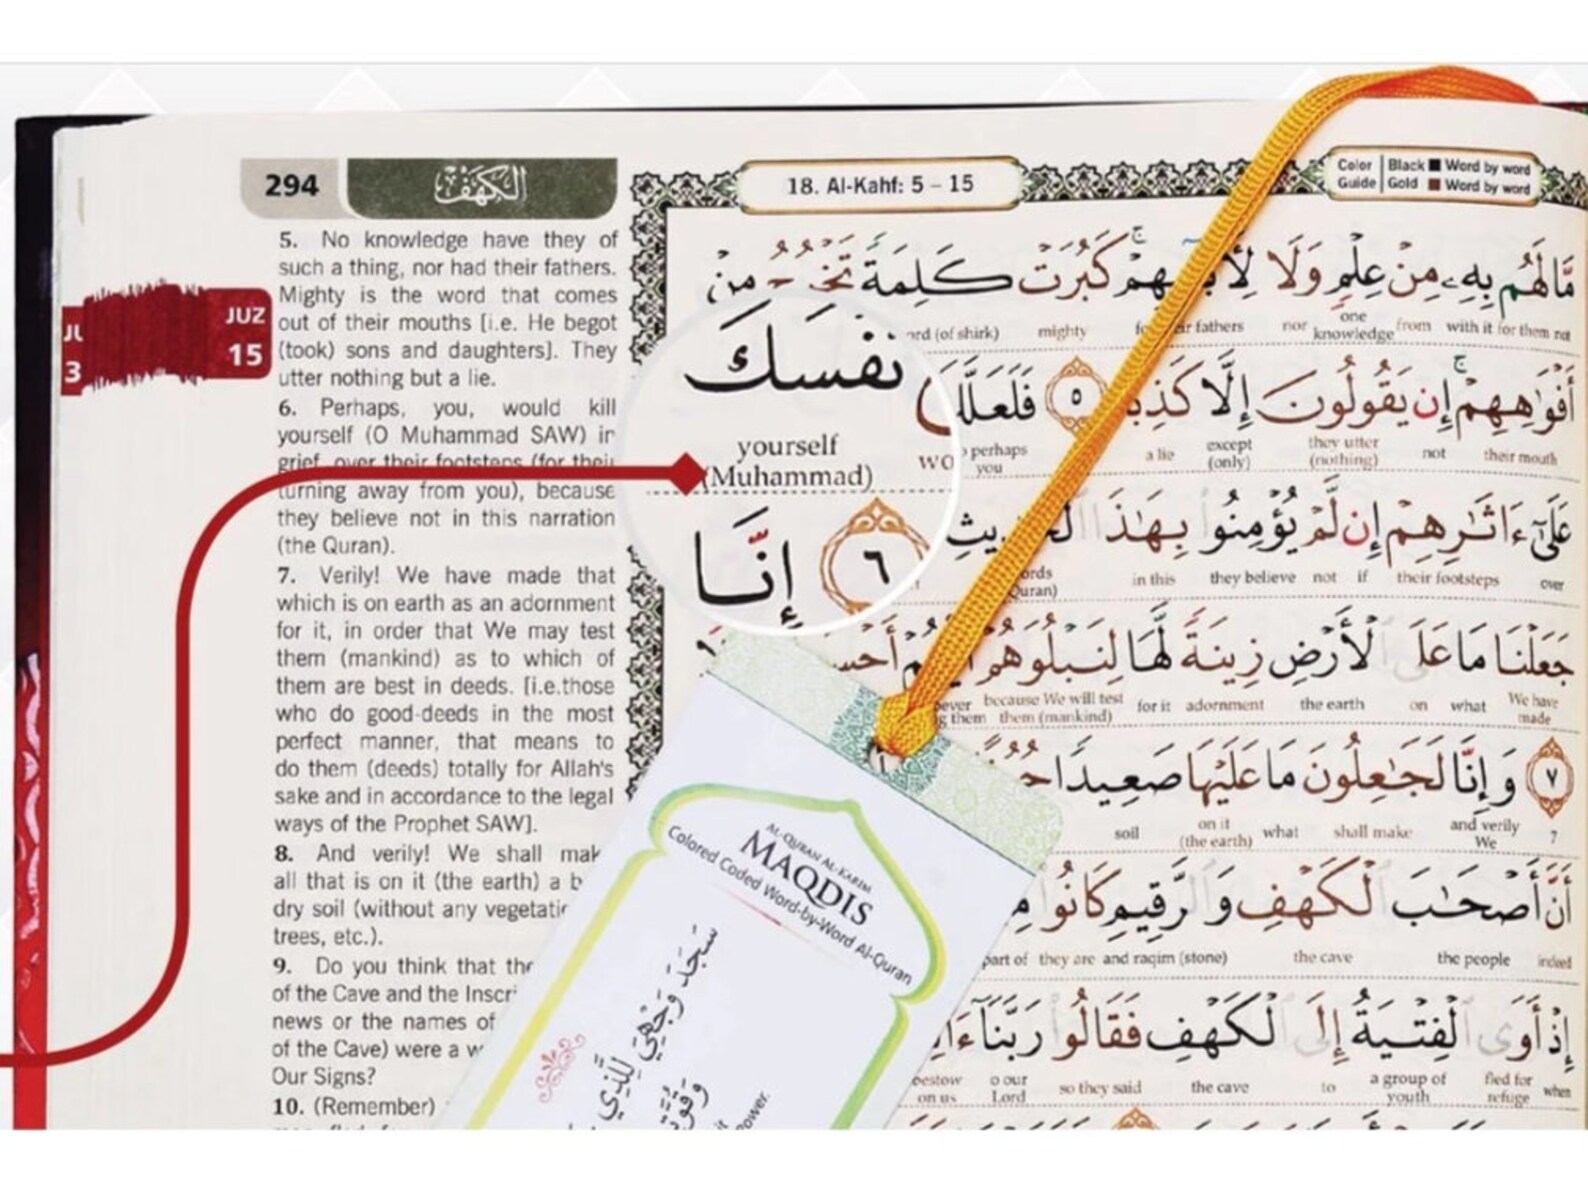 294
الكهف
18. Al-Kahf: 5 - 15
Color Guide
Black Word by word
Gold Word by word
JUZ
15
3
5. No knowledge have they of
such a thing, nor had their fathers.
Mighty is the word that comes
out of their mouths [i.e. He begot
(took) sons and daughters]. They
utter nothing but a lie.
6. Perhaps, you, would kill
yourself (O Muhammad SAW) in
grief, over their footsteps (for their
turning away from you), because
they believe not in this narration
(the Quran).
7. Verily! We have made that
which is on earth as an adornment
for it, in order that We may test
them (mankind) as to which of
them are best in deeds. [i.e.those
who do good-deeds in the most
perfect manner, that means to
do them (deeds) totally for Allah's
sake and in accordance to the legal
ways of the Prophet SAW].
8. And verily! We shall mak
all that is on it (the earth) a b
dry soil (without any vegetatio
trees, etc.).
9. Do you think that the
of the Cave and the Inscri
news or the names of
of the Cave) were a w
Our Signs?
10. (Remember)
مَّا لَهُم بِهِۦ مِنْ عِلْمٍ وَلَا كَبُرَتْ كَلِمَةً مِنْ
(of shirk) mighty fathers nor one knowledge from with it for them not
أَفْوَٰهِهِمْ إِن يَقُولُونَ إِلَّا ٥ فَلَعَلَّكَ
perhaps you a lie except (only) they utter (nothing) not their mouth
نَفْسَكَ
yourself
(Muhammad)
إِنَّا ٦
عَلَىٰٓ ءَاثَٰرِهِمْ إِن لَّمْ يُؤْمِنُوا۟ بِهَٰذَا
in this they believe not if their footsteps over
جَعَلْنَا مَا عَلَى ٱلْأَرْضِ زِينَةً لَّهَا لِنَبْلُوَهُمْ
them because We will test them (mankind) for it adornment the earth on what We have made
٧ وَإِنَّا لَجَٰعِلُونَ مَا عَلَيْهَا صَعِيدًا
soil on it (the earth) what shall make and verily We 7
أَنَّ أَصْحَٰبَ ٱلْكَهْفِ وَٱلرَّقِيمِ كَانُوا۟
part of they are and raqim (stone) the cave the people indeed
إِذْ أَوَى ٱلْفِتْيَةُ إِلَى ٱلْكَهْفِ فَقَالُوا۟ رَبَّنَآ
bestow on us O our Lord so they said the cave to a group of youth fled for refuge when
AL-QURAN AL-KARIM
MAQDIS
Colored Coded Word-by-Word Al-Quran
سَجَدَ وَجْهِيَ لِلَّذِي
power.